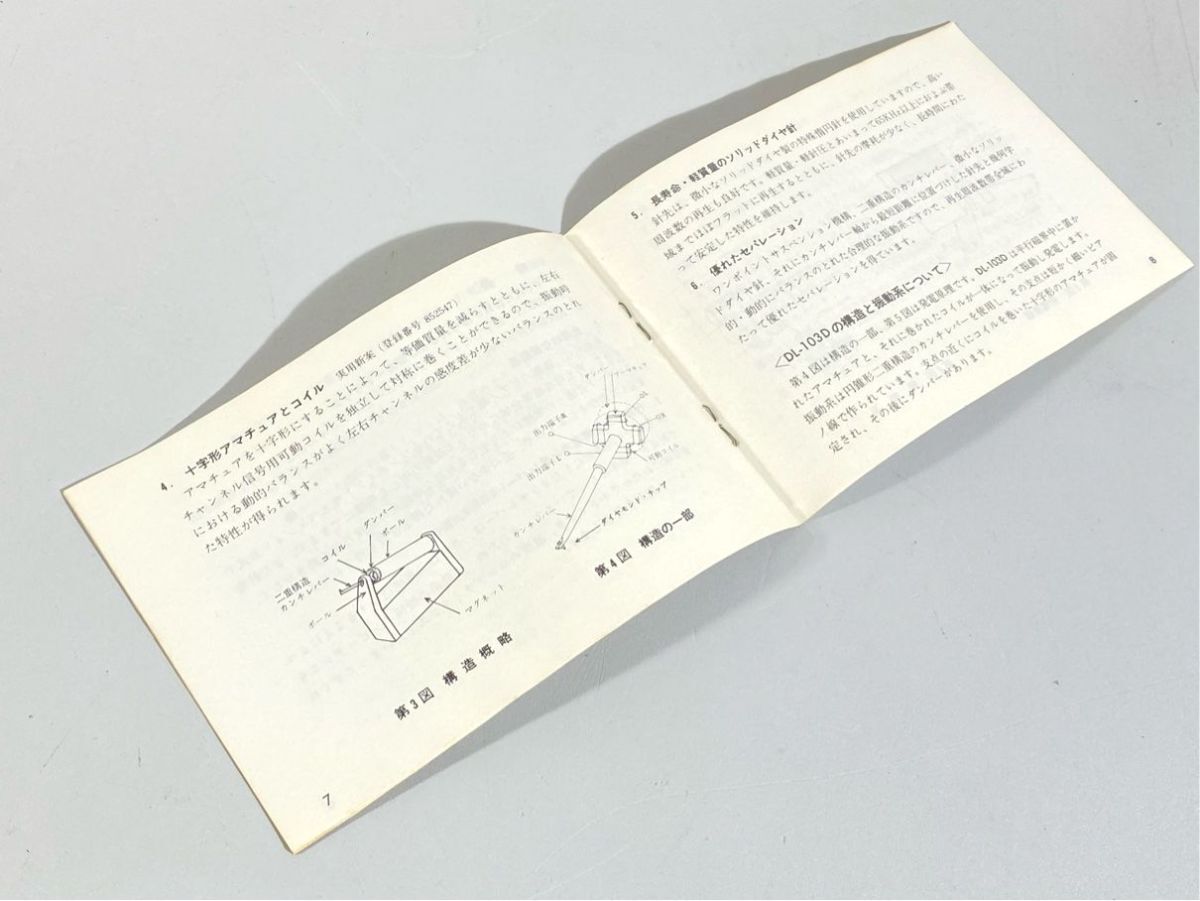 4. 十字形アマチュアとコイル 実用新案(登録番号 852547)
アマチュアを十字形にすることによって、等価質量を減らすとともに、左右
チャンネル信号用可動コイルを独立して対称に巻くことができるので、振動時
における動的バランスがよく左右チャンネルの感度差が少ないバランスのとれ
た特性が得られます。
ダンパー
コイル
ポール
二重構造
カンチレバー
ポール
マグネット
第3図 構造概略
ダンパー
出力端子
出力端子
可動コイル
カンチレバー
ダイヤモンド・チップ
第4図 構造の一部
7
5. 長寿命・軽質量のソリッドダイヤ針
針先は、微小なソリッドダイヤ製の特殊楕円針を使用していますので、高い
周波数の再生も良好です。軽質量・軽針圧とあいまって65KHz以上におよぶ帯
域までほぼフラットに再生するとともに、針先の摩耗が少なく、長時間にわた
って安定した特性を維持します。
6. 優れたセパレーション
ワンポイントサスペンション機構、二重構造のカンチレバー、微小なソリッ
ドダイヤ針、それにカンチレバー軸から最短距離に位置づけした針先と幾何学
的・動的にバランスのとれた合理的な振動系ですので、再生周波数帯全域にわ
たって優れたセパレーションを得ています。
〈DL-103Dの構造と振動系について〉
第4図は構造の一部、第5図は発電原理です。DL-103Dは平行磁界中に置か
れたアマチュアと、それに巻かれたコイルが一体になって振動し発電します。
振動系は円錐形二重構造のカンチレバーを使用し、その支点は短かく細いピア
ノ線で作られています。支点の近くにコイルを巻いた十字形のアマチュアが固
定され、その後にダンパーがあります。
8